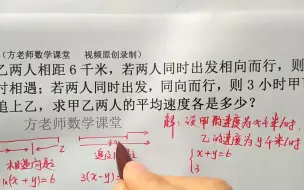 （方老师数学课堂 视频原创录制）
乙两人相距6千米，若两人同时出发相向而行，则
时相遇；若两人同时出发，同向而行，则3小时甲
追上乙，求甲乙两人的平均速度各是多少？
方老师数学课堂
解：设甲的速度为x千米/时
乙的速度为y千米/时
相遇问题
追及问题
x+y=6
1×(x+y)=6
3(x-y)=
3